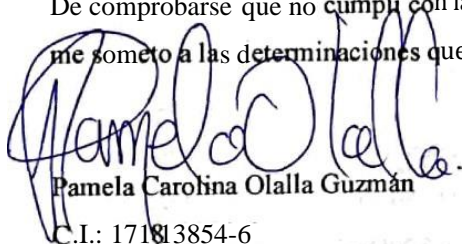 De comprobarse que no cumplí con la
me someto a las determinaciones que
Pamela Olalla.
Pamela Carolina Olalla Guzmán
C.I.: 171813854-6